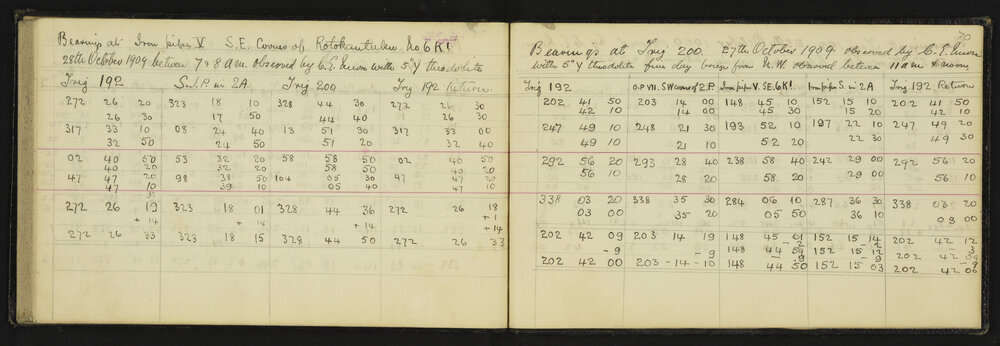 Bearings at Iron pipe V S.E. Corner of Rotokautuku No 6K1
28th October 1909 between 7 & 8 am. observed by C.E. with 5" Y theodolite
Trig 192 S.I.P. in 2A. Trig 200 Trig 192 Return.
272 26 20 323 18 10 328 44 30 272 26 30
26 30 17 50 44 40 26 30
317 33 10 08 24 40 13 51 30 317 33 00
32 50 24 50 51 20 32 40
02 40 50 53 32 20 58 58 50 02 40 50
40 20 32 20 58 50 40 20
47 47 20 98 38 50 104 05 30 47 47 20
47 10 39 10 05 40 47 10
272 26 19 323 18 01 328 44 36 272 26 18
+ 14 + 14 + 14 + 1
+ 14
272 26 33 323 18 15 328 44 50 272 26 33
70
Bearings at Trig 200. 27th October 1909 observed by C.E.
with 5" Y theodolite fine day breeze from N.W. observed between 11 am & noon
Trig 192 O.P VII. S.W corner of 2.P. Iron pipe V. S.E. 6K1 Iron pipe S. in 2A Trig 192 Return
202 41 50 203 14 00 148 45 10 152 15 10 202 41 50
42 10 14 00 45 30 15 20 42 10
247 49 10 248 21 30 193 52 10 197 22 10 247 49 20
49 10 21 10 52 20 22 30 49 30
292 56 20 293 28 40 238 58 40 242 29 00 292 56 20
56 10 28 20 58 20 29 00 56 10
338 03 20 338 35 30 284 06 10 287 36 30 338 03 20
03 00 35 20 05 50 36 10 03 00
202 42 09 203 14 19 148 45 01 152 15 14 202 42 12
- 2 - 2 - 3
- 9 - 9 148 44 59 152 15 12 202 42 09
- 9 - 9 - 9
202 42 00 203 - 14 - 10 148 44 50 152 15 03 202 42 00